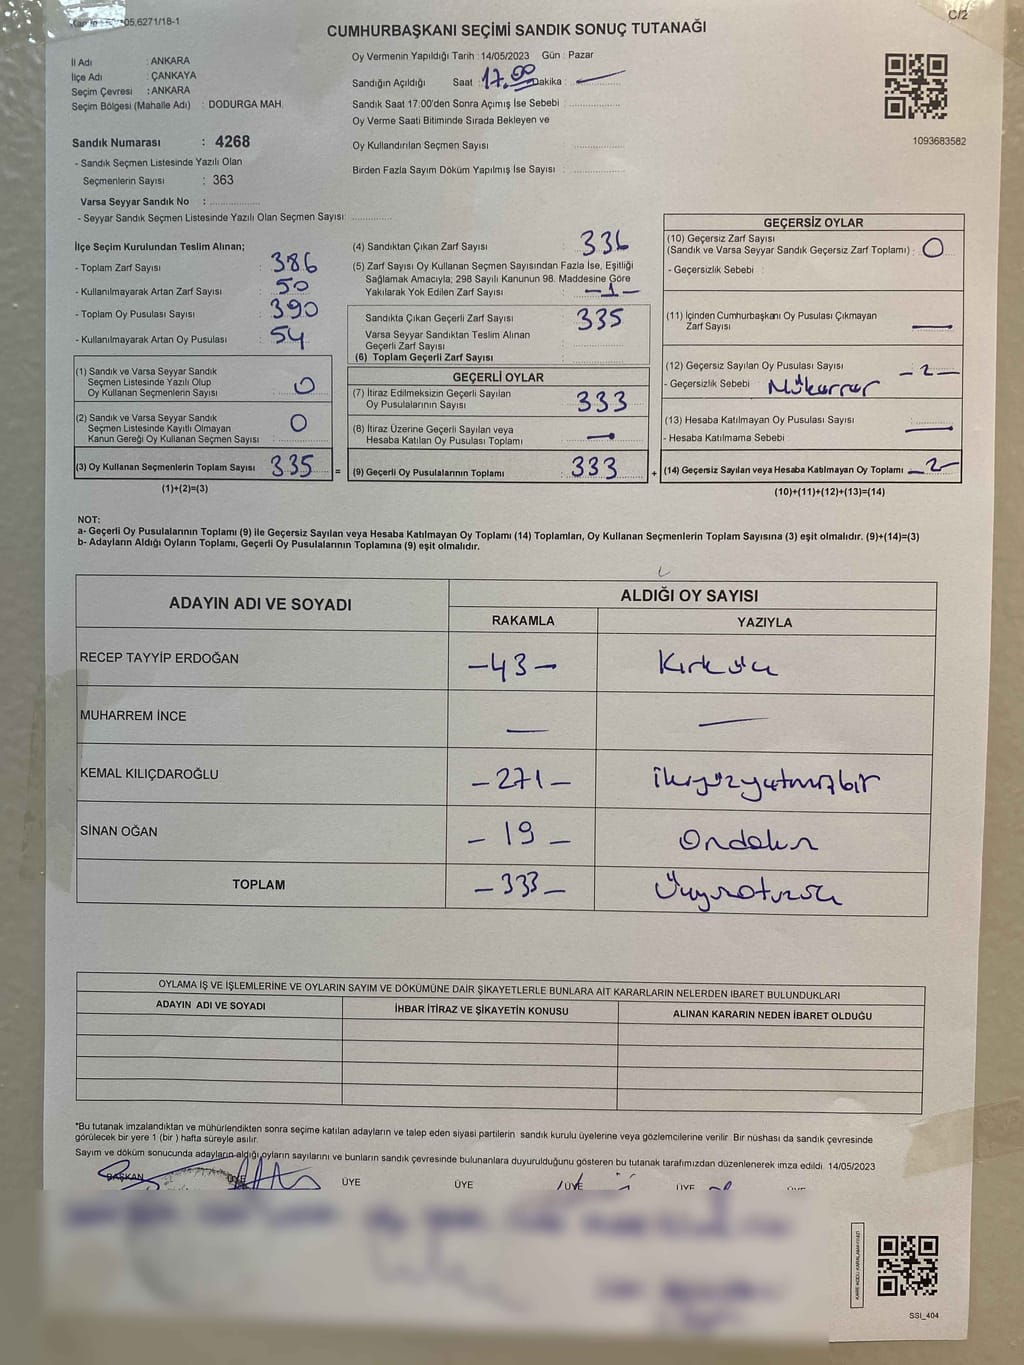 C/2
CUMHURBAŞKANI SEÇİMİ SANDIK SONUÇ TUTANAĞI
İl Adı : ANKARA
İlçe Adı : ÇANKAYA
Seçim Çevresi : ANKARA
Seçim Bölgesi (Mahalle Adı) : DODURGA MAH.
Oy Vermenin Yapıldığı Tarih : 14/05/2023 Gün : Pazar
Sandığın Açıldığı Saat : 17.00 Dakika :
Sandık Saat 17:00'den Sonra Açımış İse Sebebi :
Oy Verme Saati Bitiminde Sırada Bekleyen ve
Oy Kullandırılan Seçmen Sayısı
Birden Fazla Sayım Döküm Yapılmış İse Sayısı :
1093683582
Sandık Numarası : 4268
- Sandık Seçmen Listesinde Yazılı Olan
Seçmenlerin Sayısı : 363
Varsa Seyyar Sandık No :
- Seyyar Sandık Seçmen Listesinde Yazılı Olan Seçmen Sayısı:
İlçe Seçim Kurulundan Teslim Alınan;
- Toplam Zarf Sayısı : 386
- Kullanılmayarak Artan Zarf Sayısı : 50
- Toplam Oy Pusulası Sayısı : 390
- Kullanılmayarak Artan Oy Pusulası : 54
(1) Sandık ve Varsa Seyyar Sandık
Seçmen Listesinde Yazılı Olup
Oy Kullanan Seçmenlerin Sayısı : 0
(2) Sandık ve Varsa Seyyar Sandık
Seçmen Listesinde Kayıtlı Olmayan
Kanun Gereği Oy Kullanan Seçmen Sayısı : 0
(3) Oy Kullanan Seçmenlerin Toplam Sayısı : 335
(1)+(2)=(3)
(4) Sandıktan Çıkan Zarf Sayısı : 336
(5) Zarf Sayısı Oy Kullanan Seçmen Sayısından Fazla İse, Eşitliği
Sağlamak Amacıyla; 298 Sayılı Kanunun 98. Maddesine Göre
Yakılarak Yok Edilen Zarf Sayısı : -1-
Sandıkta Çıkan Geçerli Zarf Sayısı : 335
Varsa Seyyar Sandıktan Teslim Alınan
Geçerli Zarf Sayısı
(6) Toplam Geçerli Zarf Sayısı
GEÇERLİ OYLAR
(7) İtiraz Edilmeksizin Geçerli Sayılan
Oy Pusulalarının Sayısı : 333
(8) İtiraz Üzerine Geçerli Sayılan veya
Hesaba Katılan Oy Pusulası Toplamı : —
= (9) Geçerli Oy Pusulalarının Toplamı : 333
GEÇERSİZ OYLAR
(10) Geçersiz Zarf Sayısı
(Sandık ve Varsa Seyyar Sandık Geçersiz Zarf Toplamı) : 0
- Geçersizlik Sebebi :
(11) İçinden Cumhurbaşkanı Oy Pusulası Çıkmayan
Zarf Sayısı —
(12) Geçersiz Sayılan Oy Pusulası Sayısı -2-
- Geçersizlik Sebebi Mükerrer
(13) Hesaba Katılmayan Oy Pusulası Sayısı : —
- Hesaba Katılmama Sebebi
+ (14) Geçersiz Sayılan veya Hesaba Katılmayan Oy Toplamı -2-
(10)+(11)+(12)+(13)=(14)
NOT:
a- Geçerli Oy Pusulalarının Toplamı (9) ile Geçersiz Sayılan veya Hesaba Katılmayan Oy Toplamı (14) Toplamları, Oy Kullanan Seçmenlerin Toplam Sayısına (3) eşit olmalıdır. (9)+(14)=(3)
b- Adayların Aldığı Oyların Toplamı, Geçerli Oy Pusulalarının Toplamına (9) eşit olmalıdır.
ADAYIN ADI VE SOYADI ALDIĞI OY SAYISI
RAKAMLA YAZIYLA
RECEP TAYYİP ERDOĞAN -43- Kırküç
MUHARREM İNCE — —
KEMAL KILIÇDAROĞLU -271- ikiyüzyetmişbir
SİNAN OĞAN -19- Ondokuz
TOPLAM -333- Üçyüzotuzüç
OYLAMA İŞ VE İŞLEMLERİNE VE OYLARIN SAYIM VE DÖKÜMÜNE DAİR ŞİKAYETLERLE BUNLARA AİT KARARLARIN NELERDEN İBARET BULUNDUKLARI
ADAYIN ADI VE SOYADI İHBAR İTİRAZ VE ŞİKAYETİN KONUSU ALINAN KARARIN NEDEN İBARET OLDUĞU
*Bu tutanak imzalandıktan ve mühürlendikten sonra seçime katılan adayların ve talep eden siyasi partilerin sandık kurulu üyelerine veya gözlemcilerine verilir. Bir nüshası da sandık çevresinde
görülecek bir yere 1 (bir ) hafta süreyle asılır.
Sayım ve döküm sonucunda adayların aldığı oyların sayılarını ve bunların sandık çevresinde bulunanlara duyurulduğunu gösteren bu tutanak tarafımızdan düzenlenerek imza edildi. 14/05/2023
BAŞKAN ÜYE ÜYE ÜYE ÜYE ÜYE ÜYE
SSI_404